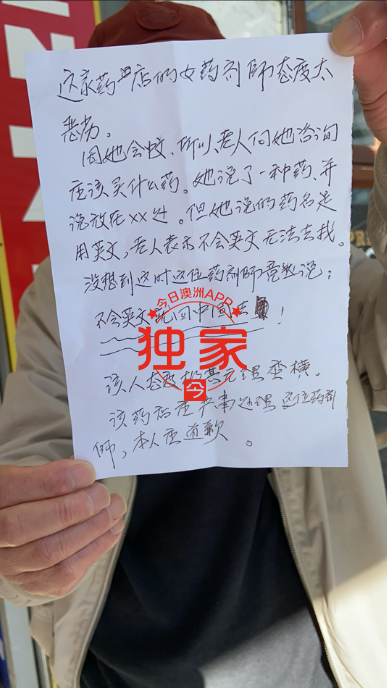 这家药店的女药剂師态度太
恶劣。
因她会蚊、所以老人问她咨询
应该买什么药。她说了一种药、并
说放在××处。但她说的药名是
用英文,老人表示不会英文无法去找。
没想到这时这位药剂师竟然说:
不会英文就回中国去!
今日澳洲APP
独家
该人态度极其无理蛮横。
该药店应严肃处理这位药剂
师,本人应道歉。